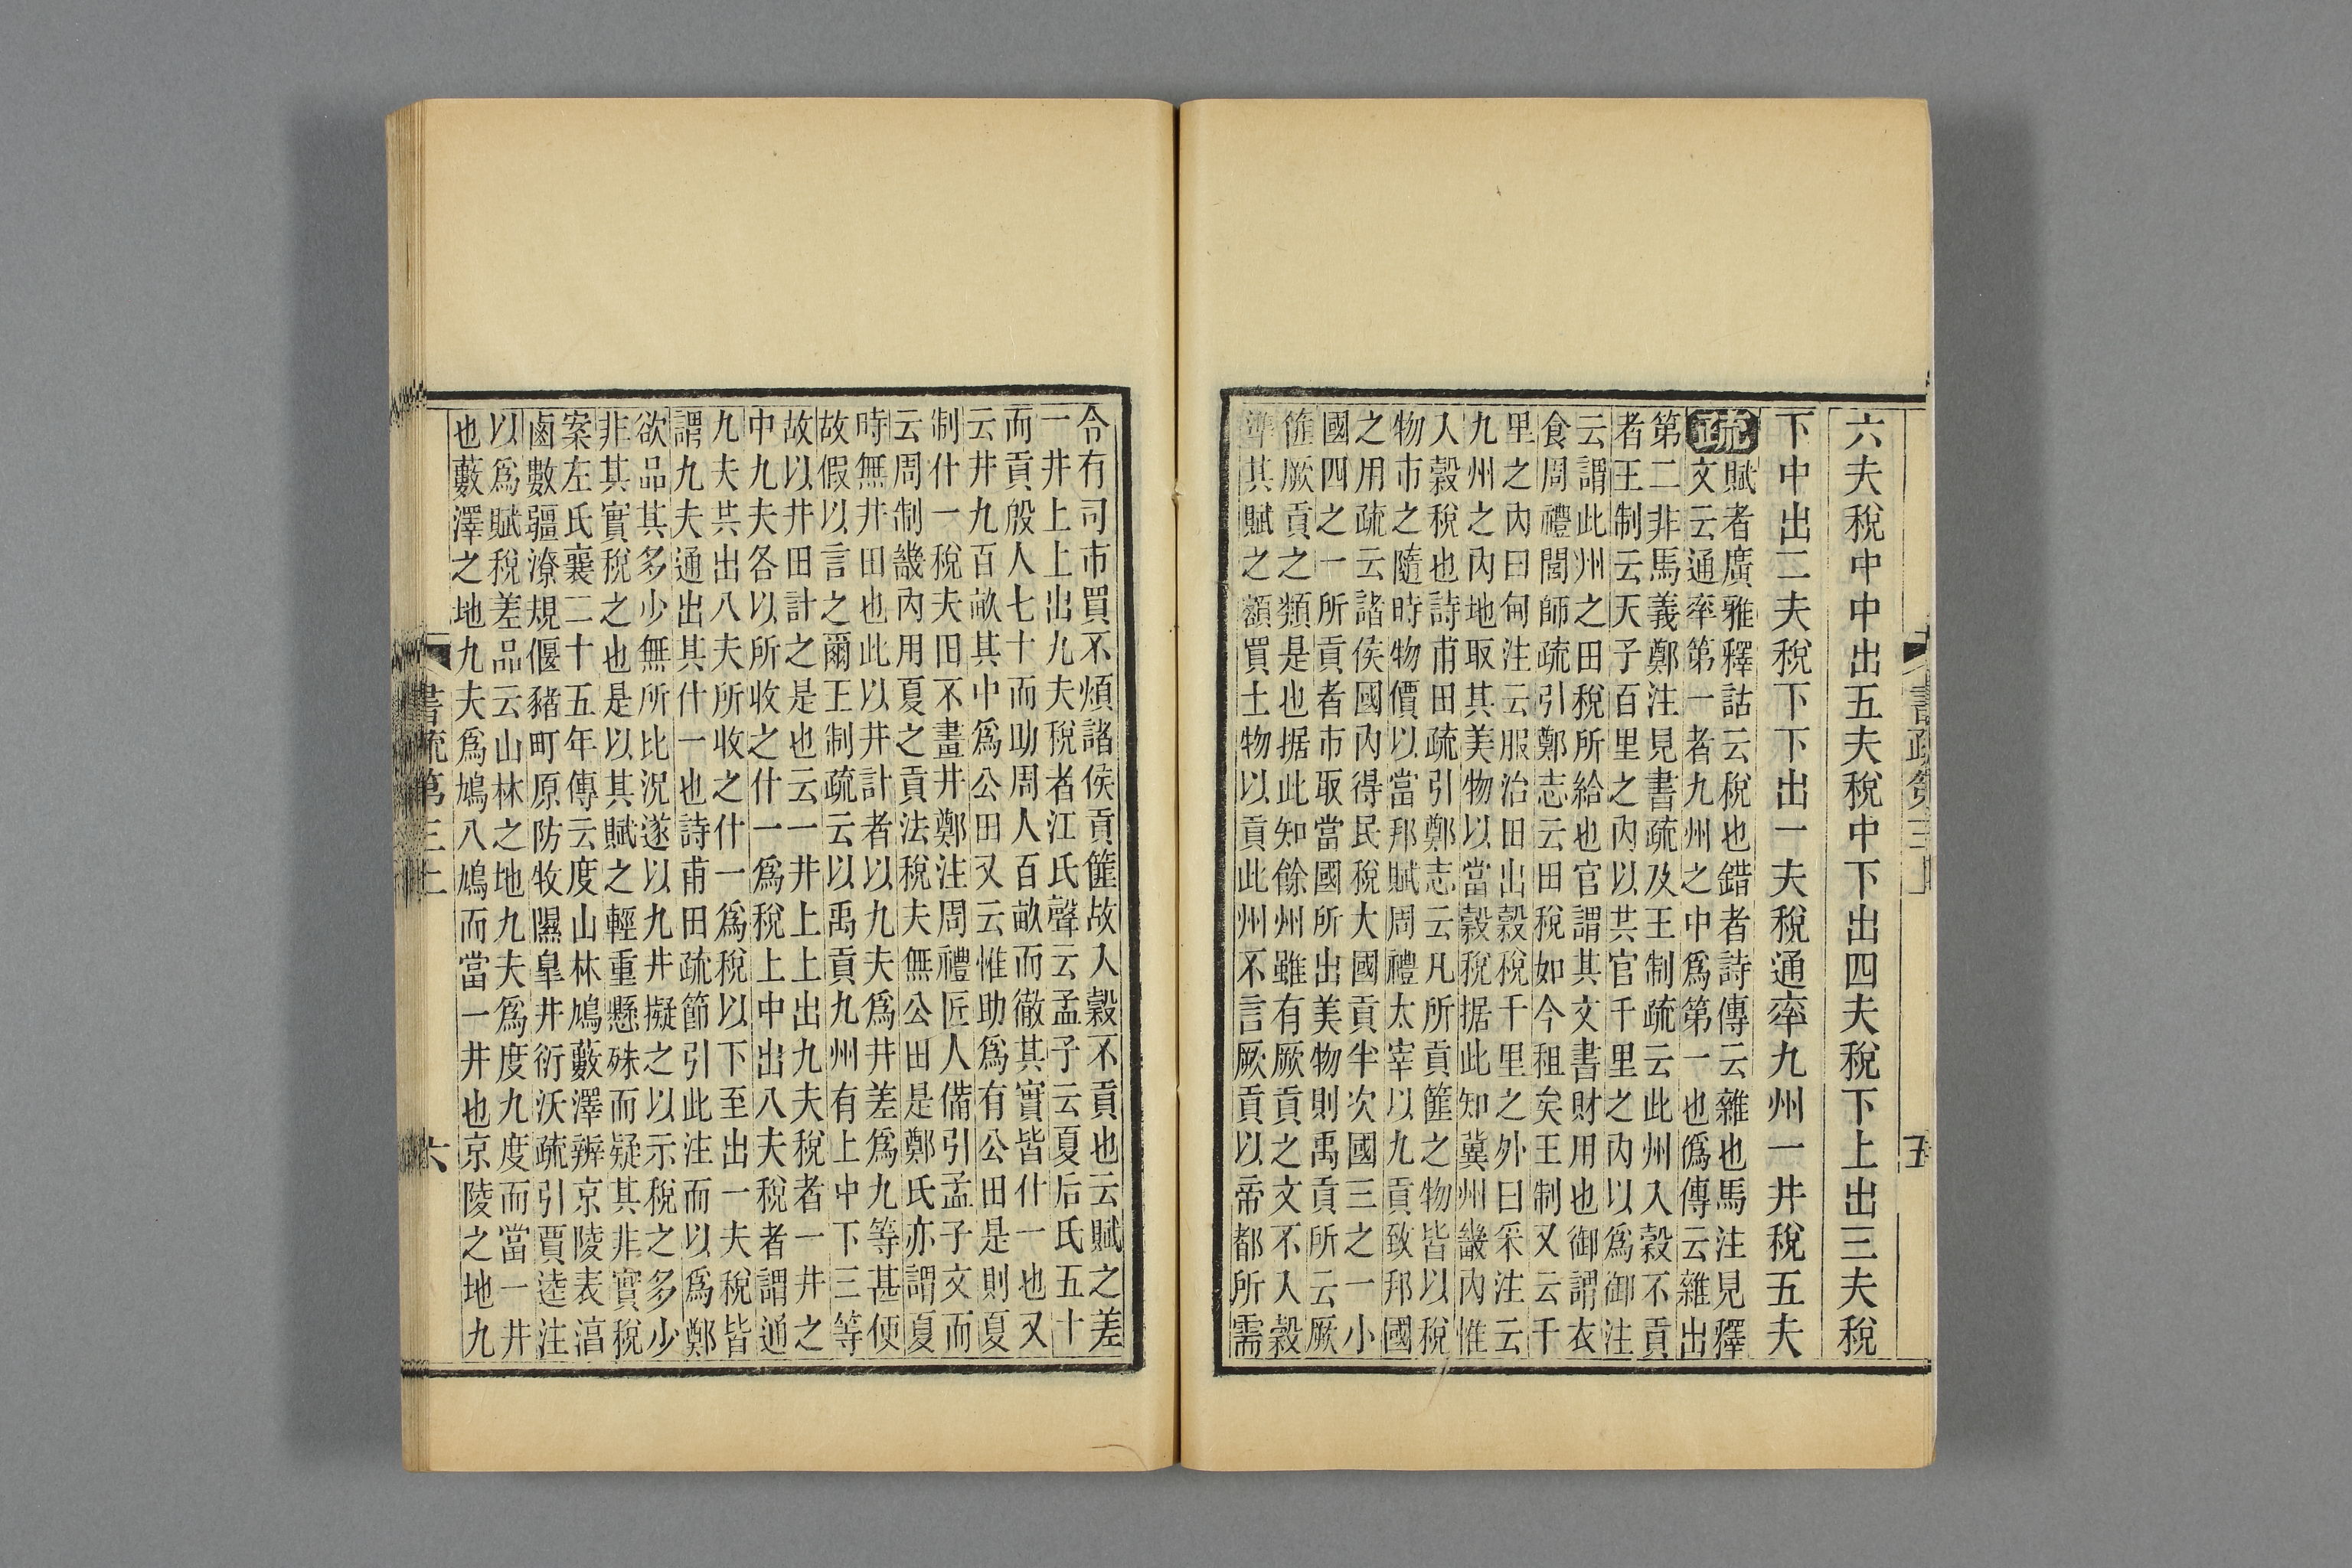 書疏第三上
五
六夫稅中中出五夫稅中下出四夫稅下上出三夫稅
下中出二夫稅下下出一夫稅通率九州一井稅五夫
疏賦者廣雅釋詁云稅也錯者詩傳云雜也馬注見釋
文云通率第一者九州之中爲第一也僞傳云雜出
第二非馬義鄭注見書疏及王制疏云此州入穀不貢
者王制云天子百里之內以共官千里之內以爲御注
云謂此州之田稅所給也官謂其文書財用也御謂衣
食周禮閭師疏引鄭志云田稅如今租矣王制又云千
里之內曰甸注云服治田出穀稅千里之外曰采注云
九州之內地取其美物以當穀稅据此知冀州畿內惟
入穀稅也詩甫田疏引鄭志云凡所貢篚之物皆以稅
物市之隨時物價以當邦賦周禮太宰以九貢致邦國
之用疏云諸侯國內得民稅大國貢半次國三之一小
國四之一所貢者市取當國所出美物則禹貢所云厥
篚厥貢之類是也据此知餘州雖有厥貢之文不入穀
準其賦之額買土物以貢此州不言厥貢以帝都所需
令有司市買不煩諸侯貢篚故入穀不貢也云賦之差
一井上上出九夫稅者江氏聲云孟子云夏后氏五十
而貢殷人七十而助周人百畝而徹其實皆什一也又
云井九百畝其中爲公田又云惟助爲有公田是則夏
制什一稅夫田不畫井鄭注周禮匠人備引孟子文而
云周制畿內用夏之貢法稅夫無公田是鄭氏亦謂夏
時無井田也此以井計者以九夫爲井差爲九等甚便
故假以言之爾王制疏云以禹貢九州有上中下三等
故以井田計之是也云一井上上出九夫稅者一井之
中九夫各以所收之什一爲稅上中出八夫稅者謂通
九夫共出八夫所收之什一爲稅以下至出一夫稅皆
謂九夫通出其什一也詩甫田疏節引此注而以爲鄭
欲品其多少無所比況遂以九井擬之以示稅之多少
非其實稅之也是以其賦之輕重懸殊而疑其非實稅
案左氏襄二十五年傳云度山林鳩藪澤辨京陵表淳
鹵數疆潦規偃豬町原防牧隰皐井衍沃疏引賈逵注
以爲賦稅差品云山林之地九夫爲度九度而當一井
也藪澤之地九夫爲鳩八鳩而當一井也京陵之地九
書疏第三上
六